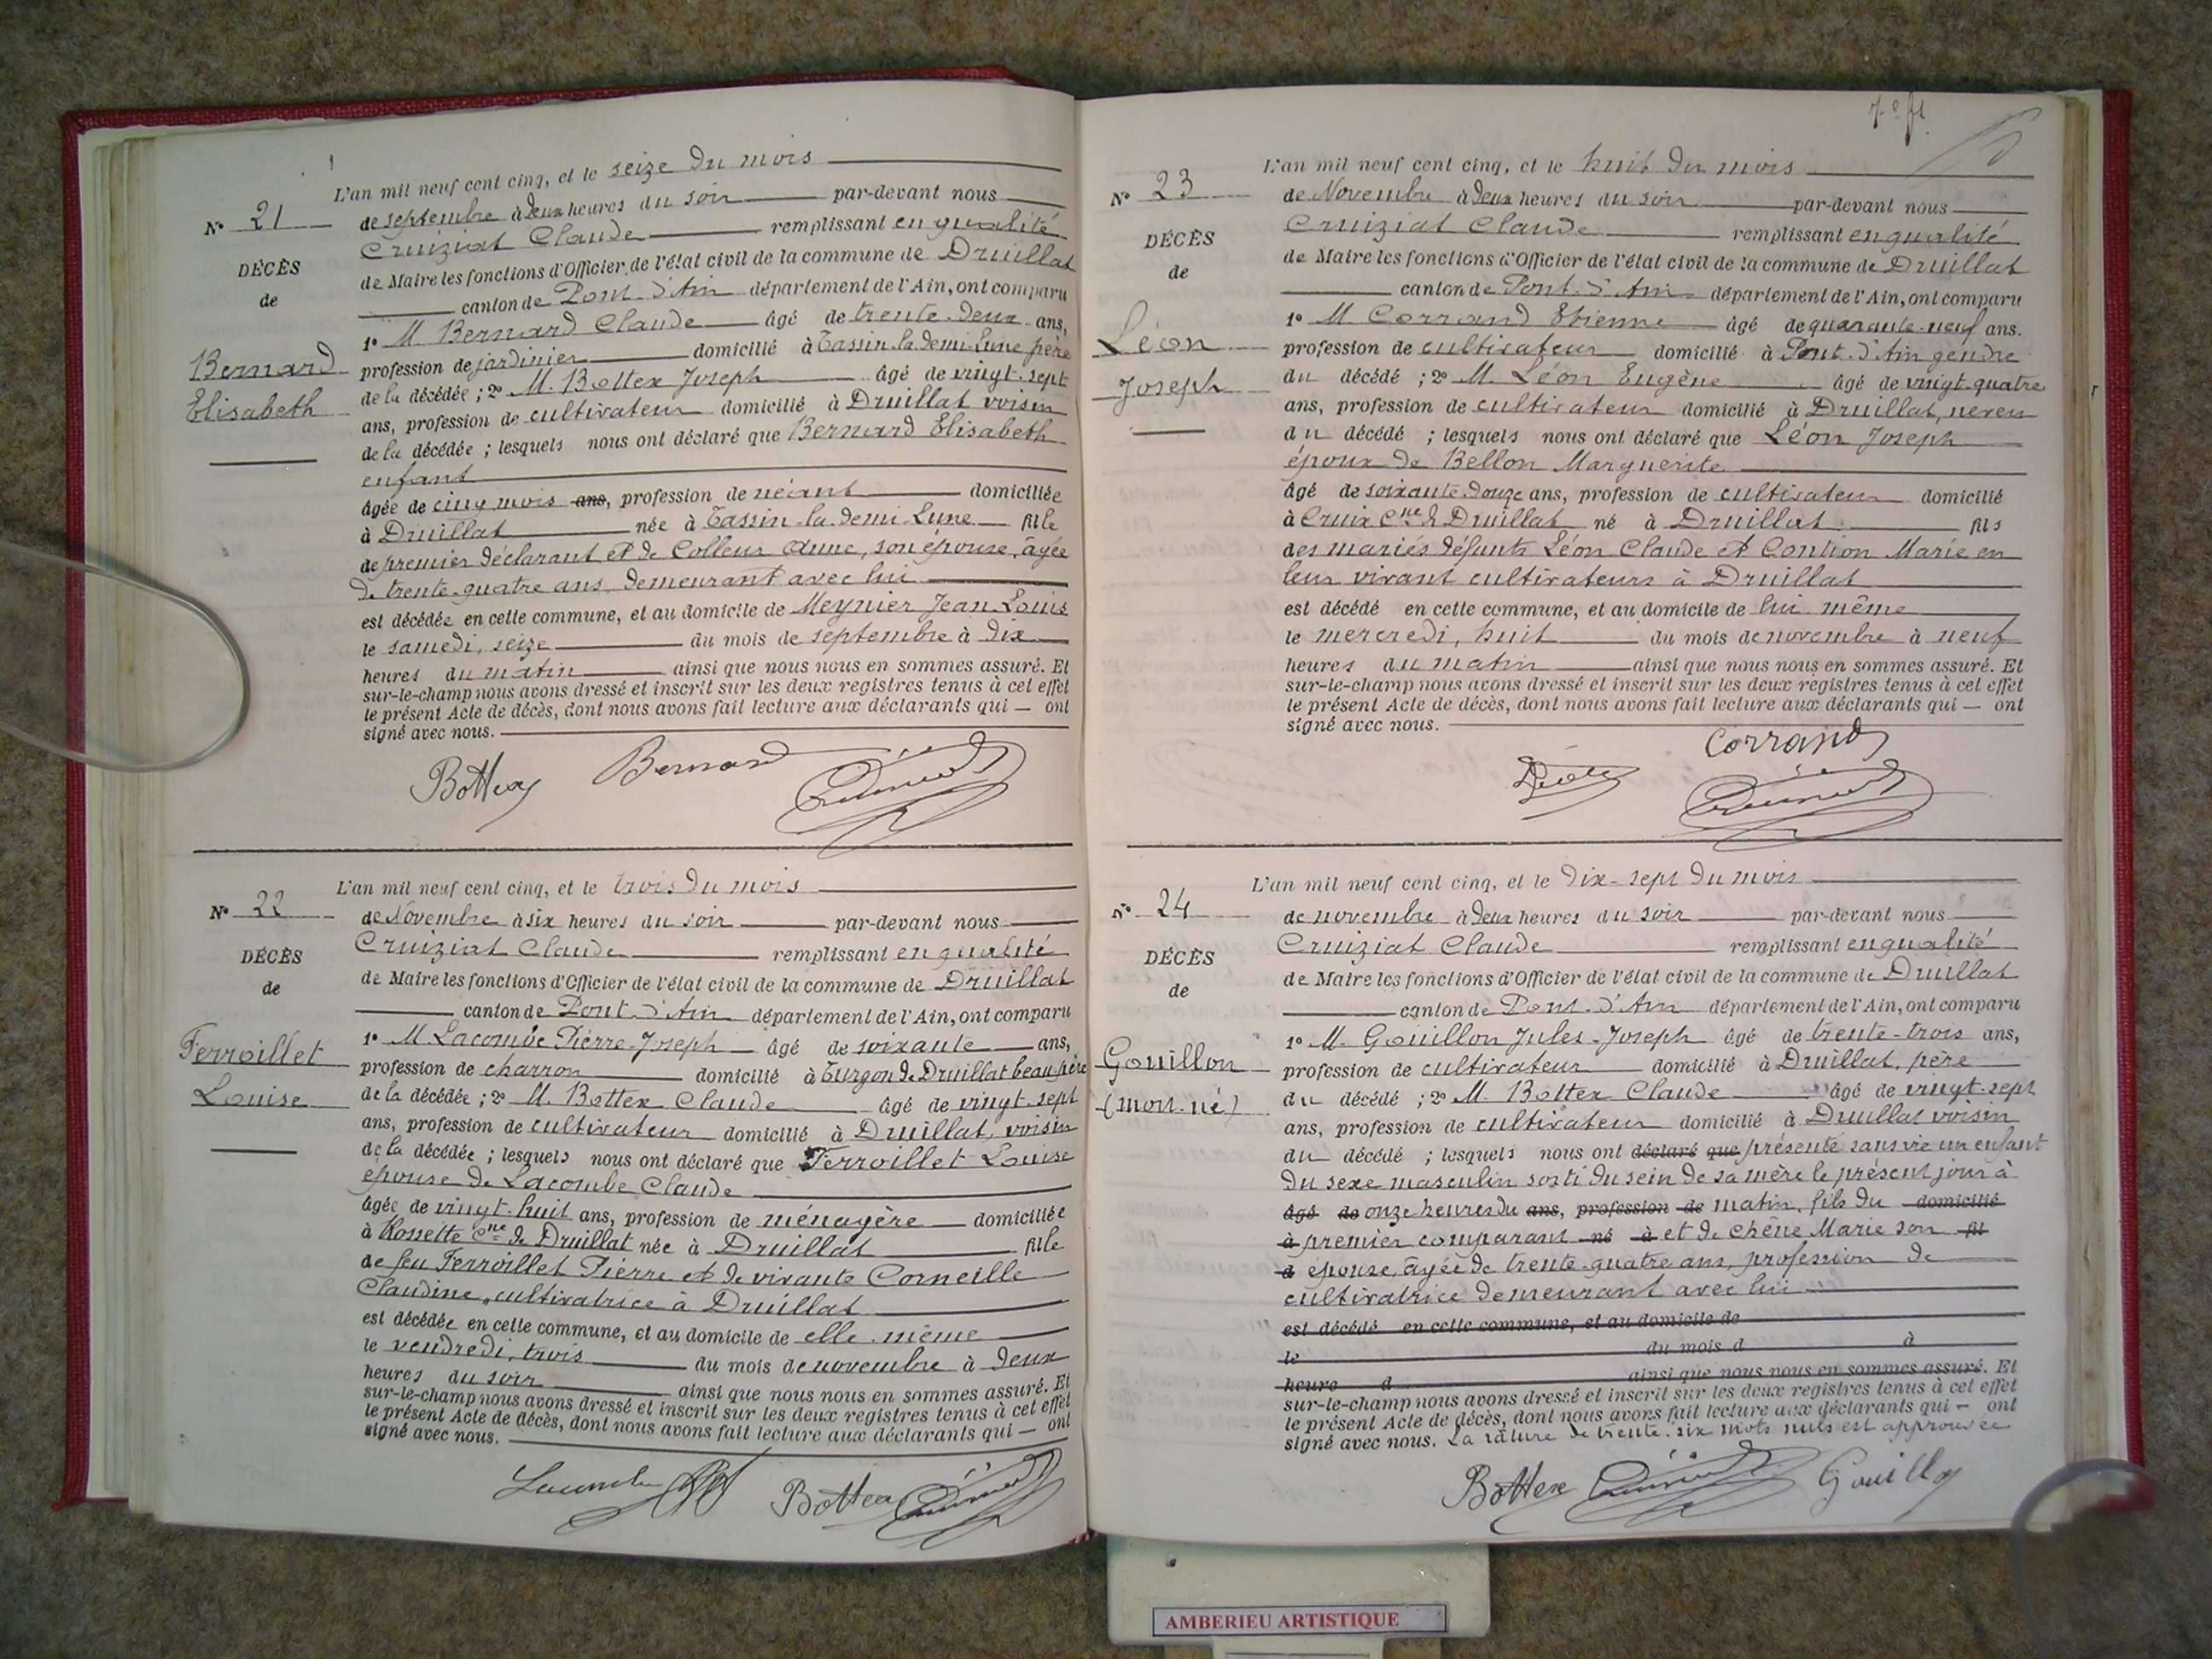 L'an mil neuf cent cinq, et le seize du mois
N° 21
de septembre à deux heures du soir par-devant nous
Cruiziat Claude remplissant en qualité
DÉCÈS
de Maire les fonctions d'Officier de l'état civil de la commune de Druillat
de
canton de Pont-d'Ain département de l'Ain, ont comparu
1° M. Bernard Claude âgé de trente-deux ans,
Bernard
profession de jardinier domicilié à Tassin-la-demi-Lune père
de la décédée ; 2° M. Bottex Joseph âgé de vingt-sept
Elisabeth
ans, profession de cultivateur domicilié à Druillat voisin
de la décédée ; lesquels nous ont déclaré que Bernard Elisabeth
enfant
âgée de cinq mois ans, profession de néant domiciliée
à Druillat née à Tassin-la-demi-Lune fille
de premier déclarant et de Colleur Anne, son épouse, âgée
de trente-quatre ans, demeurant avec lui
est décédée en cette commune, et au domicile de Meynier Jean-Louis
le samedi, seize du mois de septembre à dix
heures du matin ainsi que nous nous en sommes assuré. Et
sur-le-champ nous avons dressé et inscrit sur les deux registres tenus à cet effet
le présent Acte de décès, dont nous avons fait lecture aux déclarants qui — ont
signé avec nous.
Bottex Bernard Cruiziat
L'an mil neuf cent cinq, et le trois du mois
N° 22
de Novembre à six heures du soir par-devant nous
Cruiziat Claude remplissant en qualité
DÉCÈS
de Maire les fonctions d'Officier de l'état civil de la commune de Druillat
de
canton de Pont-d'Ain département de l'Ain, ont comparu
1° M. Lacombe Pierre-Joseph âgé de soixante ans,
Ferroillet
profession de charron domicilié à Turgon de Druillat beau-père
Louise
de la décédée ; 2° M. Bottex Claude âgé de vingt-sept
ans, profession de cultivateur domicilié à Druillat, voisin
de la décédée ; lesquels nous ont déclaré que Ferroillet Louise
épouse de Lacombe Claude
âgée de vingt-huit ans, profession de ménagère domiciliée
à Rossette Cne de Druillat née à Druillat fille
de feu Ferroillet Pierre et de vivante Corneille
Claudine, cultivatrice à Druillat
est décédée en cette commune, et au domicile de elle-même
le vendredi, trois du mois de novembre à deux
heures du soir ainsi que nous nous en sommes assuré. Et
sur-le-champ nous avons dressé et inscrit sur les deux registres tenus à cet effet
le présent Acte de décès, dont nous avons fait lecture aux déclarants qui — ont
signé avec nous.
Lacombe Bottex Cruiziat
L'an mil neuf cent cinq, et le huit du mois
N° 23
de Novembre à deux heures du soir par-devant nous
Cruiziat Claude remplissant en qualité
DÉCÈS
de Maire les fonctions d'Officier de l'état civil de la commune de Druillat
de
canton de Pont-d'Ain département de l'Ain, ont comparu
1° M. Corrand Etienne âgé de quarante-neuf ans.
Léon
profession de cultivateur domicilié à Pont-d'Ain gendre
Joseph
du décédé ; 2° M. Léon Eugène âgé de vingt-quatre
ans, profession de cultivateur domicilié à Druillat, neveu
du décédé ; lesquels nous ont déclaré que Léon Joseph
époux de Bellon Marguerite
âgé de soixante-douze ans, profession de cultivateur domicilié
à Cruix Cne de Druillat né à Druillat fils
des mariés défunts Léon Claude et Contion Marie en
leur vivant cultivateurs à Druillat
est décédé en cette commune, et au domicile de lui-même
le mercredi, huit du mois de novembre à neuf
heures du matin ainsi que nous nous en sommes assuré. Et
sur-le-champ nous avons dressé et inscrit sur les deux registres tenus à cet effet
le présent Acte de décès, dont nous avons fait lecture aux déclarants qui — ont
signé avec nous.
Corrand
Léon Cruiziat
L'an mil neuf cent cinq, et le dix-sept du mois
N° 24
de novembre à deux heures du soir par-devant nous
Cruiziat Claude remplissant en qualité
DÉCÈS
de Maire les fonctions d'Officier de l'état civil de la commune de Druillat
de
canton de Pont-d'Ain département de l'Ain, ont comparu
1° M. Gouillon Jules-Joseph âgé de trente-trois ans,
Gouillon
profession de cultivateur domicilié à Druillat, père
(mort-né)
du décédé ; 2° M. Bottex Claude âgé de vingt-sept
ans, profession de cultivateur domicilié à Druillat voisin
du décédé ; lesquels nous ont déclaré que présenté sans vie un enfant
du sexe masculin sorti du sein de sa mère le présent jour à
âgé de onze heures du ans, profession de matin, fils du domicilié
à premier comparant né à et de Chêne Marie son fil
d épouse, âgée de trente-quatre ans, profession de
cultivatrice demeurant avec lui
est décédé en cette commune, et au domicile de
le du mois d à
heure d ainsi que nous nous en sommes assuré. Et
sur-le-champ nous avons dressé et inscrit sur les deux registres tenus à cet effet
le présent Acte de décès, dont nous avons fait lecture aux déclarants qui — ont
signé avec nous. La râture de trente-six mots nuls est approuvée
Bottex Cruiziat Gouillon
AMBERIEU ARTISTIQUE